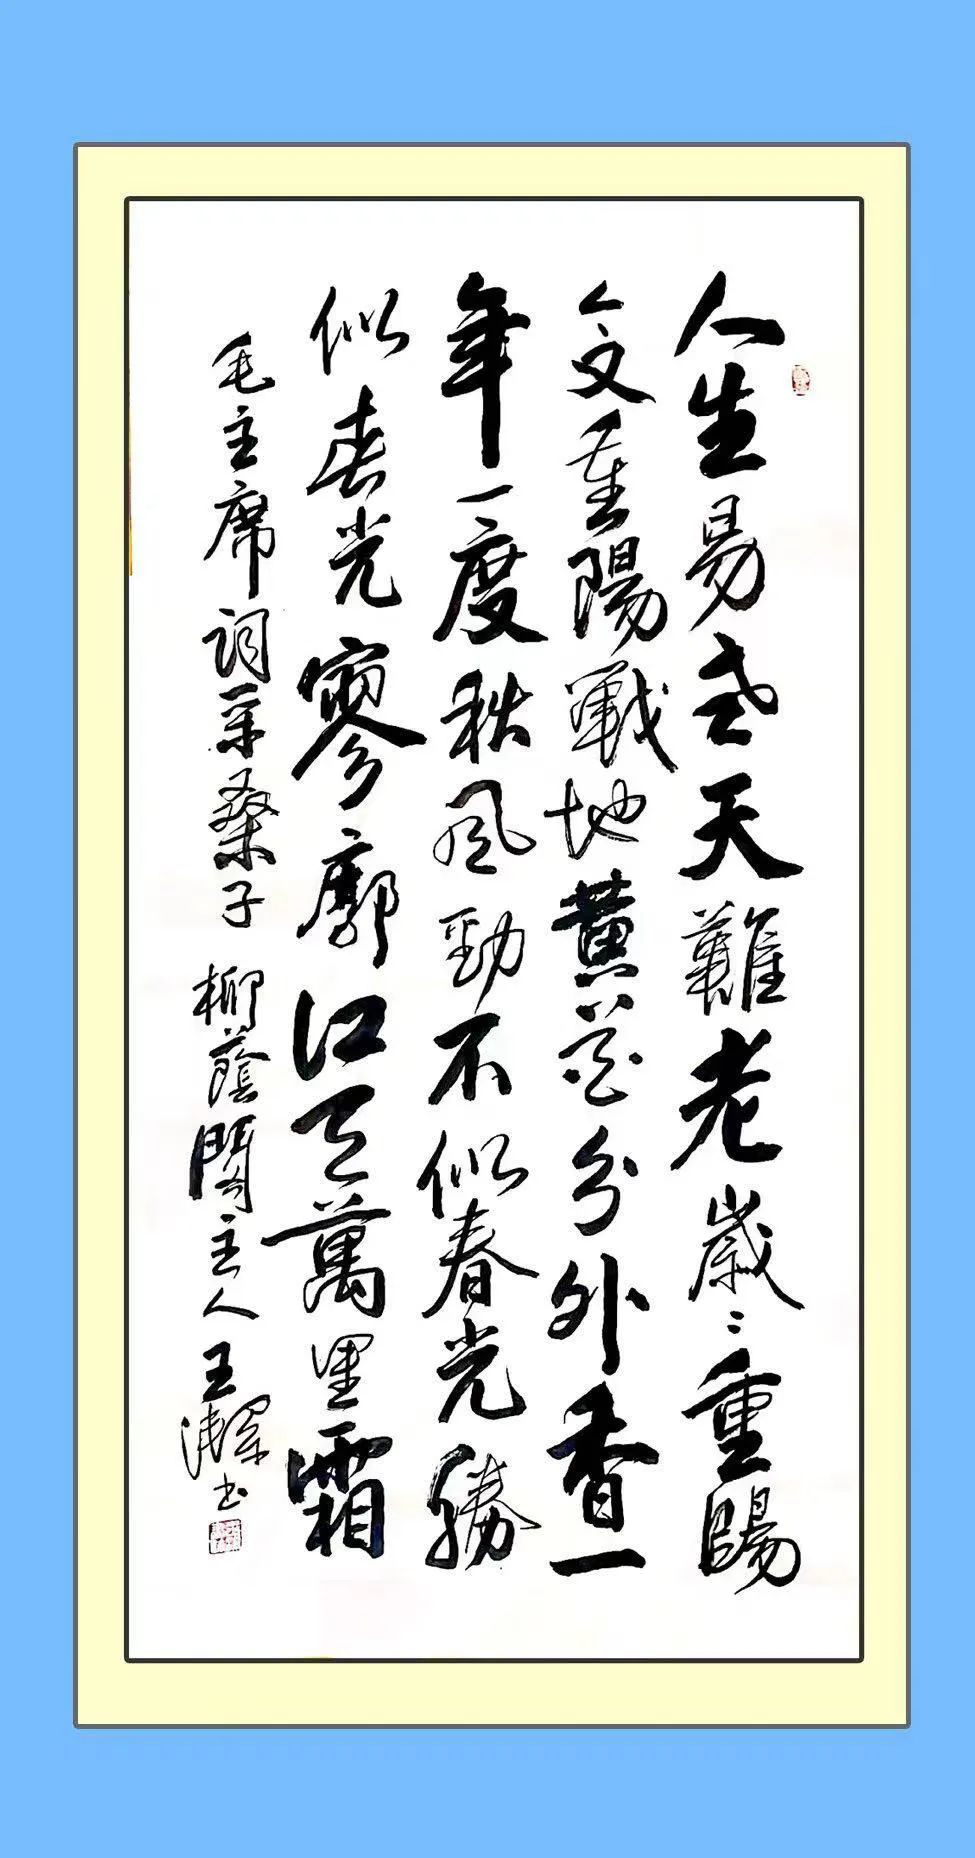 人生易老天難老歲〻重陽
今又重陽戰地黃花分外香一
年一度秋風勁不似春光勝
似春光寥廓江天萬里霜
毛主席詞采桑子 柳蔭閣主人王書